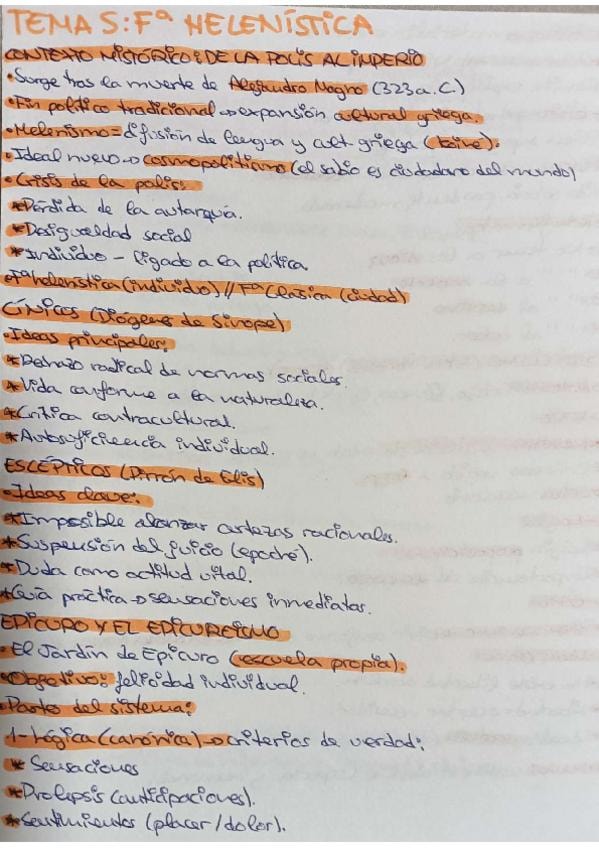 TEMA 5: Fª HELENÍSTICA
CONTEXTO HISTÓRICO: DE LA POLIS AL IMPERIO
•Surge tras la muerte de Alejandro Magno (323 a.C.)
•Fin político tradicional → expansión cultural griega.
•Helenismo = difusión de lengua y cult. griega (koiné).
•Ideal nuevo → cosmopolitismo (el sabio es ciudadano del mundo)
•Crisis de la polis:
*Pérdida de la autarquía.
*Desigualdad social
*Individuo – ligado a la política.
•Fª helenística (individuo) // Fª Clásica (ciudad)
CÍNICOS (Diógenes de Sinope)
•Ideas principales:
*Rechazo radical de normas sociales.
*Vida conforme a la naturaleza.
*Crítica contracultural.
*Autosuficiencia individual.
ESCÉPTICOS (Pirrón de Elis)
•Ideas clave:
*Imposible alcanzar certezas racionales.
*Suspensión del juicio (epoché).
*Duda como actitud vital.
*Guía práctica → sensaciones inmediatas.
EPICURO Y EL EPICUREÍSMO
•El Jardín de Epicuro (escuela propia).
•Objetivo: felicidad individual.
•Partes del sistema:
1-Lógica (canónica) → criterios de verdad:
* Sensaciones
*Prolepsis (anticipaciones).
*Sentimientos (placer/dolor).